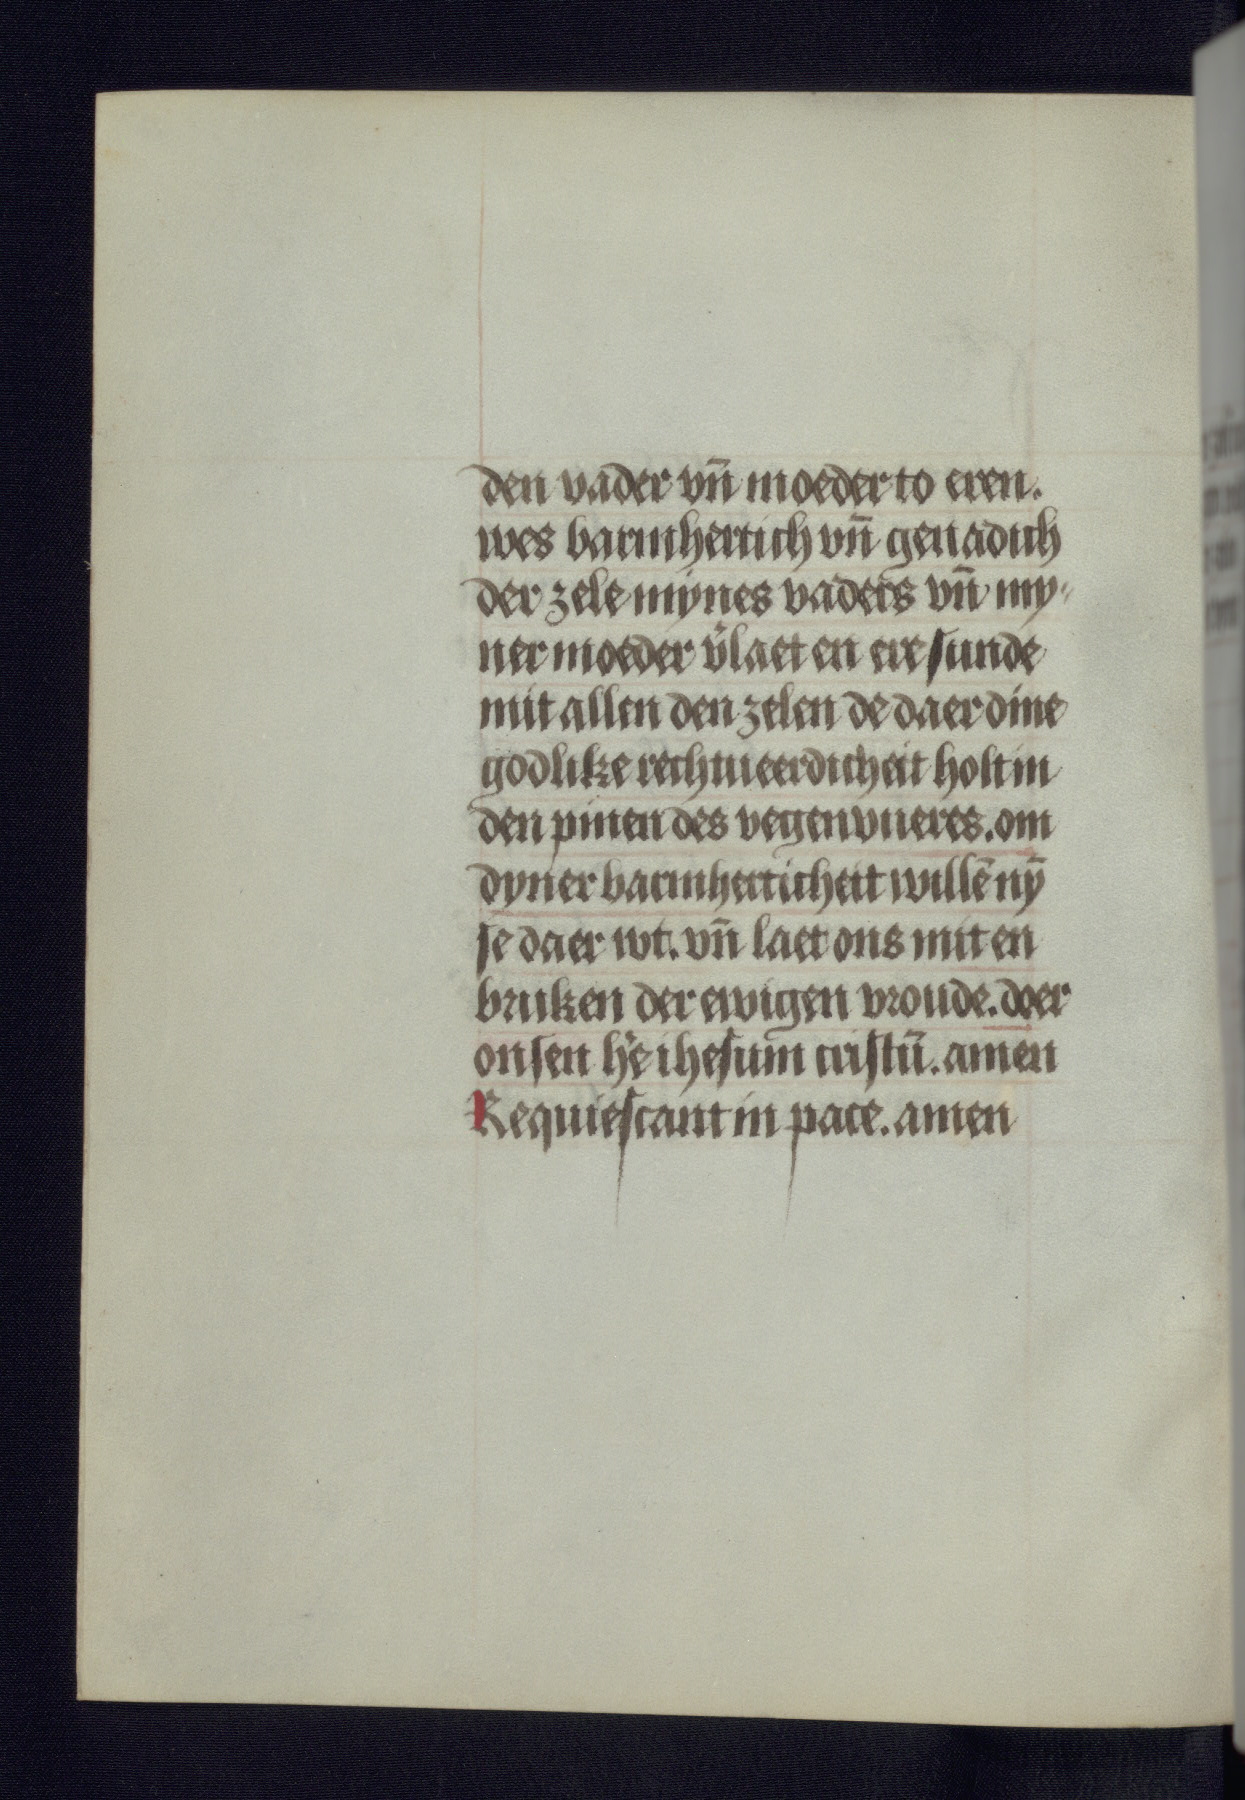 den vader vn̄ moeder to eren.
wes barmhertich vn̄ genadich
der zele mÿnes vaders vn̄ my-
ner moeder v̓laet en ere sunde
mit allen den zelen de daer dine
godlike rechtueerdicheit holt in
den pinen des vegenvueres. om
dyner barmherticheit willē nȳ
se daer wt. vn̄ laet ons mit en
bruken der ewigen vroude. doer
onsen h̓e ihesum cristū. amen
Requiescant in pace. amen